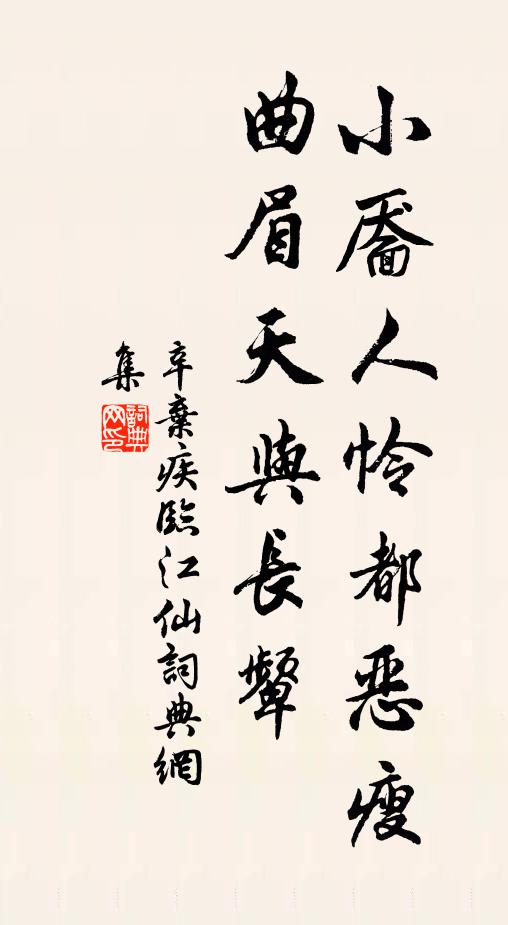 小靨人怜都恶瘦
曲眉天與長顰
辛棄疾臨江仙詞典網
集
詞典網印